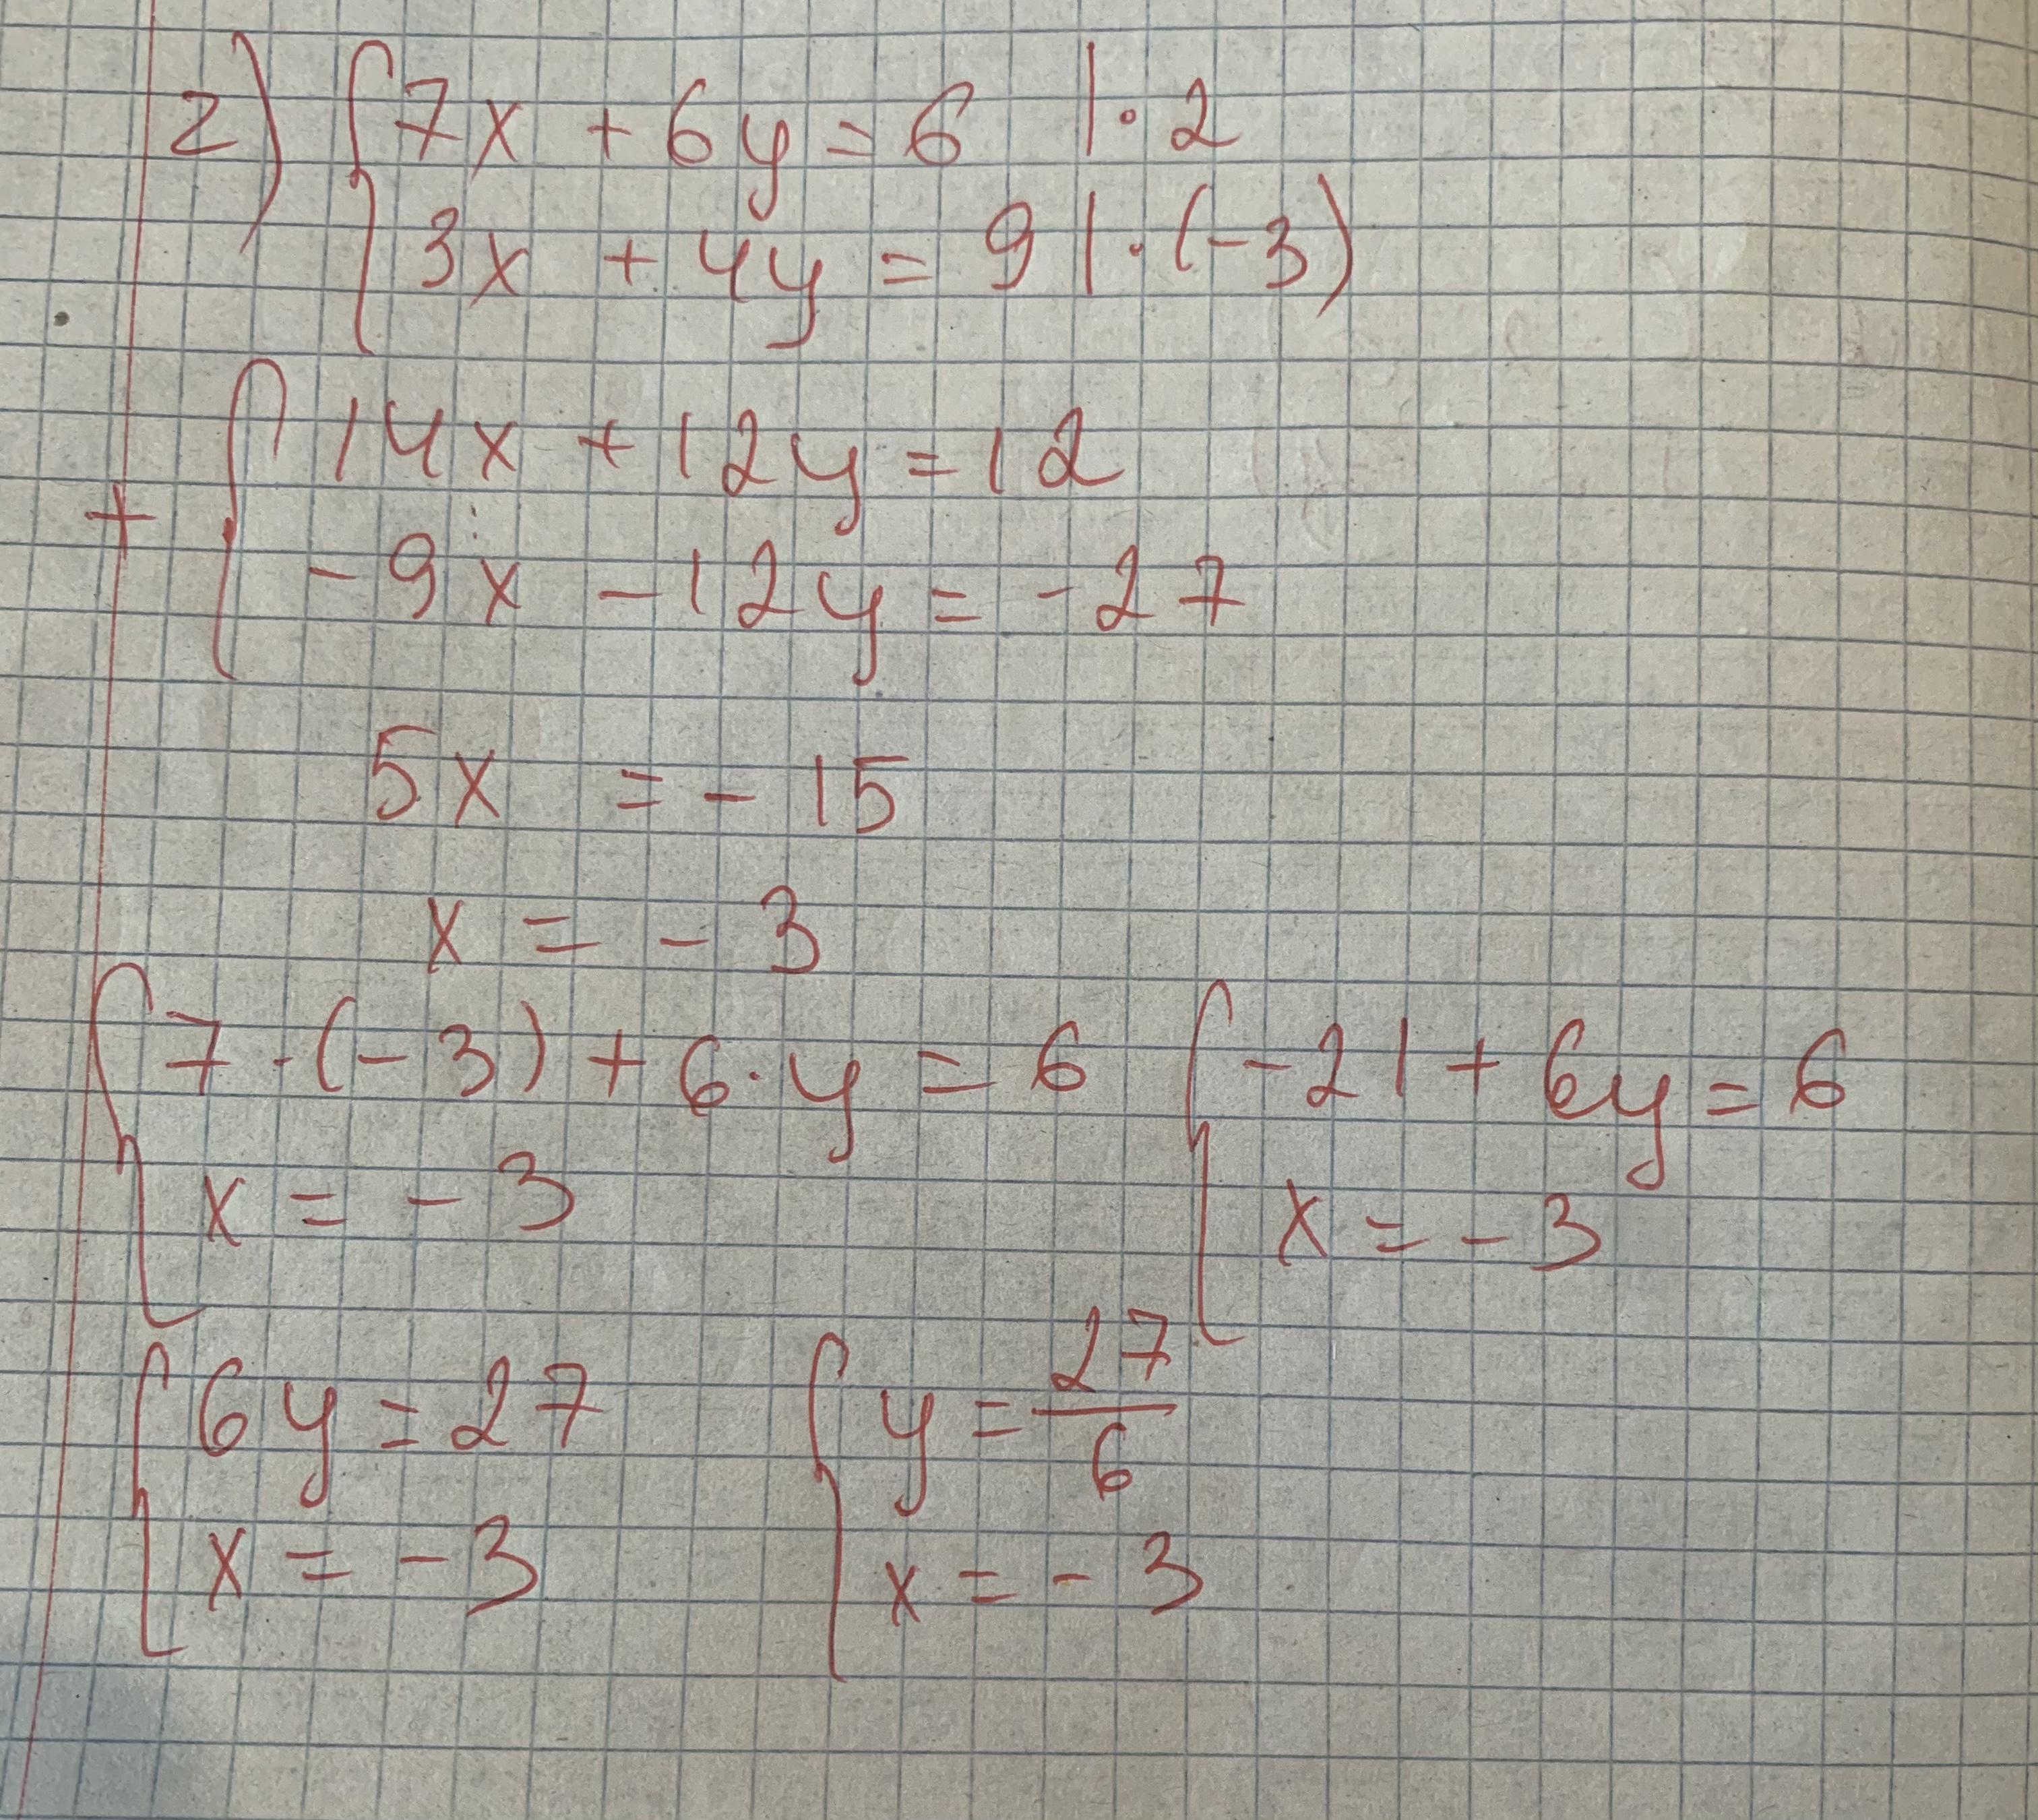 2) { 7x + 6y = 6 | · 2
3x + 4y = 9 | · (-3)
+ { 14x + 12y = 12
-9x - 12y = -27
5x = -15
x = -3
{ 7 · (-3) + 6 · y = 6 { -21 + 6y = 6
x = -3 x = -3
{ 6y = 27 { y = 27/6
x = -3 x = -3